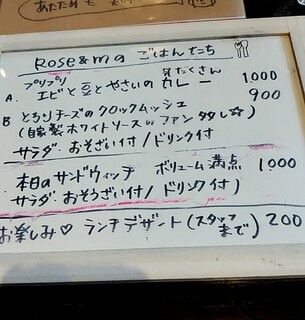 あたためも
Rose&mの ごはんたち
プリプリ 具だくさん
A. エビと豆とやさいの カレー 1,000
B とろりチーズのクロックムッシュ 900
(自家製ホワイトソース
サラダ. おそざい付 / ドリンク付
本日のサンドウィッチ ボリューム満点 1,000
サラダ. おそうざい付 / ドリンク付)
お楽しみ♡ ランチデザート (スタッフまで) 200